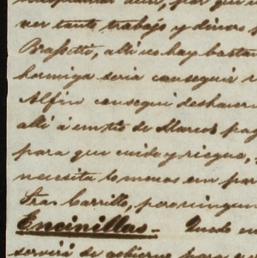 ver tanto trabajo y dinero
Brassetti, allí no hay basta
hormiga seria conseguir
Alfin consegui deshacer
allí á un tio de Marcos pag
para que cuide y riegue,
necesita lo menos un par
Sra. Carrillo, pero ningun
Encinillas.- Quedo en
servirá de gobierno para